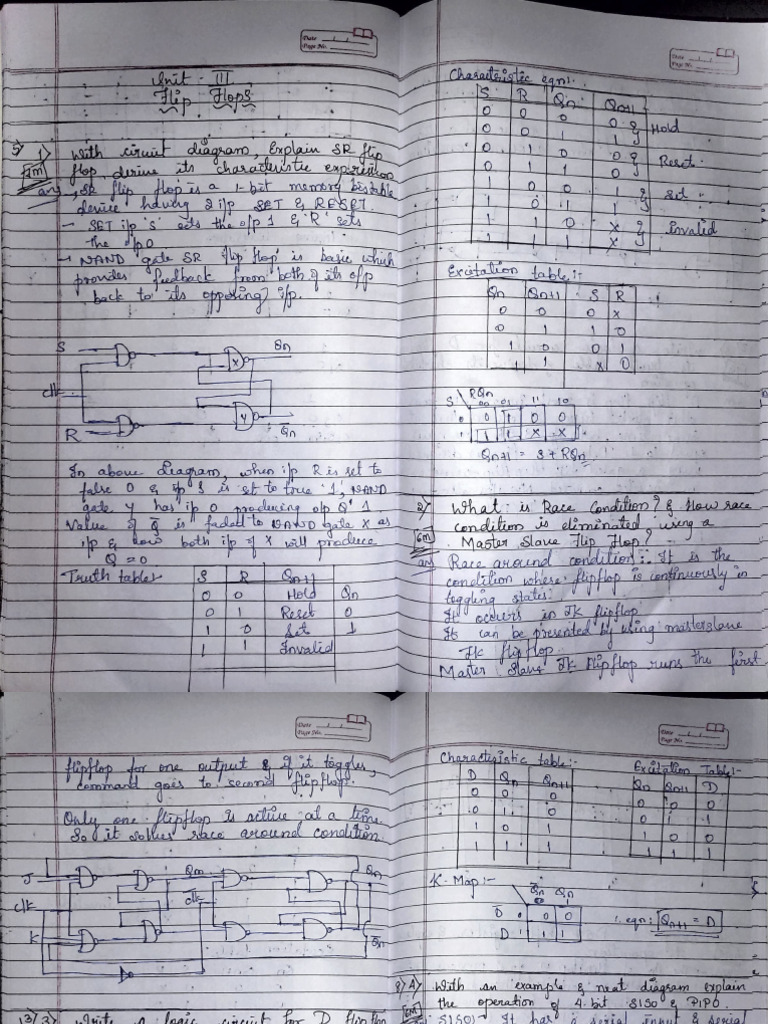 Date
Page No.
Unit - III
Flip Flops
5) 1) With circuit diagram, Explain SR flip
flop, derive its characteristic expression
ans, SR flip flop is a 1-bit memory bistable
device having 2 i/p SET & RESET
- SET i/p 'S' sets the o/p 1 & 'R' sets
the o/p 0
- NAND gate SR flip flop is basic which
provides feedback from both of its o/p
back to its opposing i/p.
S
X
Qn
clk
R
Y
Q̅n
In above diagram, when i/p R is set to
false 0 & i/p S is set to true '1', NAND
gate Y has i/p 0 producing o/p Q' 1.
Value of Q̅ is faded to NAND gate X as
i/p & now both i/p of X will produce
Q = 0
Truth table:-
S R Qn+1
0 0 Hold Qn
0 1 Reset 0
1 0 Set 1
1 1 Invalid
Date
Page No.
Characteristic eqn:-
S R Qn Qn+1
0 0 0 0
0 0 1 1 } Hold
0 1 0 0
0 1 1 0 } Reset
1 0 0 1
1 0 1 1 } Set
1 1 0 X
1 1 1 X } Invalid
Excitation table:-
Qn Qn+1 S R
0 0 0 X
0 1 1 0
1 0 0 1
1 1 X 0
S RQn
00 01 11 10
0 0 1 0 0
1 1 1 X X
Qn+1 = S + RQn
2) What is Race Condition? & How race
6m condition is eliminated using a
Master Slave Flip Flop?
ans) Race around condition:- It is the
condition where flipflop is continuously in
toggling states.
It occurs in JK flipflop
It can be presented by using masterslave
JK flipflop
Master Slave JK Flipflop runs the first
Date
Page No.
flipflop for one output & if it toggles,
command goes to second flipflop.
Only one flipflop is active at a time.
So it solves race around condition.
J
Qm
Qn
clk
c̅l̅k̅
K
Q̅n
13) 3) Write a logic circuit for D flipflop
Date
Page No.
Characteristic table:-
D Qn Qn+1
0 0 0
0 1 0
1 0 1
1 1 1
Excitation Table:-
Qn Qn+1 D
0 0 0
0 1 1
1 0 0
1 1 1
K-Map:-
Q̅n Qn
D̅ 0 0 0
D 1 1 1
eqn: Qn+1 = D
4) With an example & neat diagram explain
the operation of 4 bit SISO & PIPO.
SISO:- It has a serial input & serial